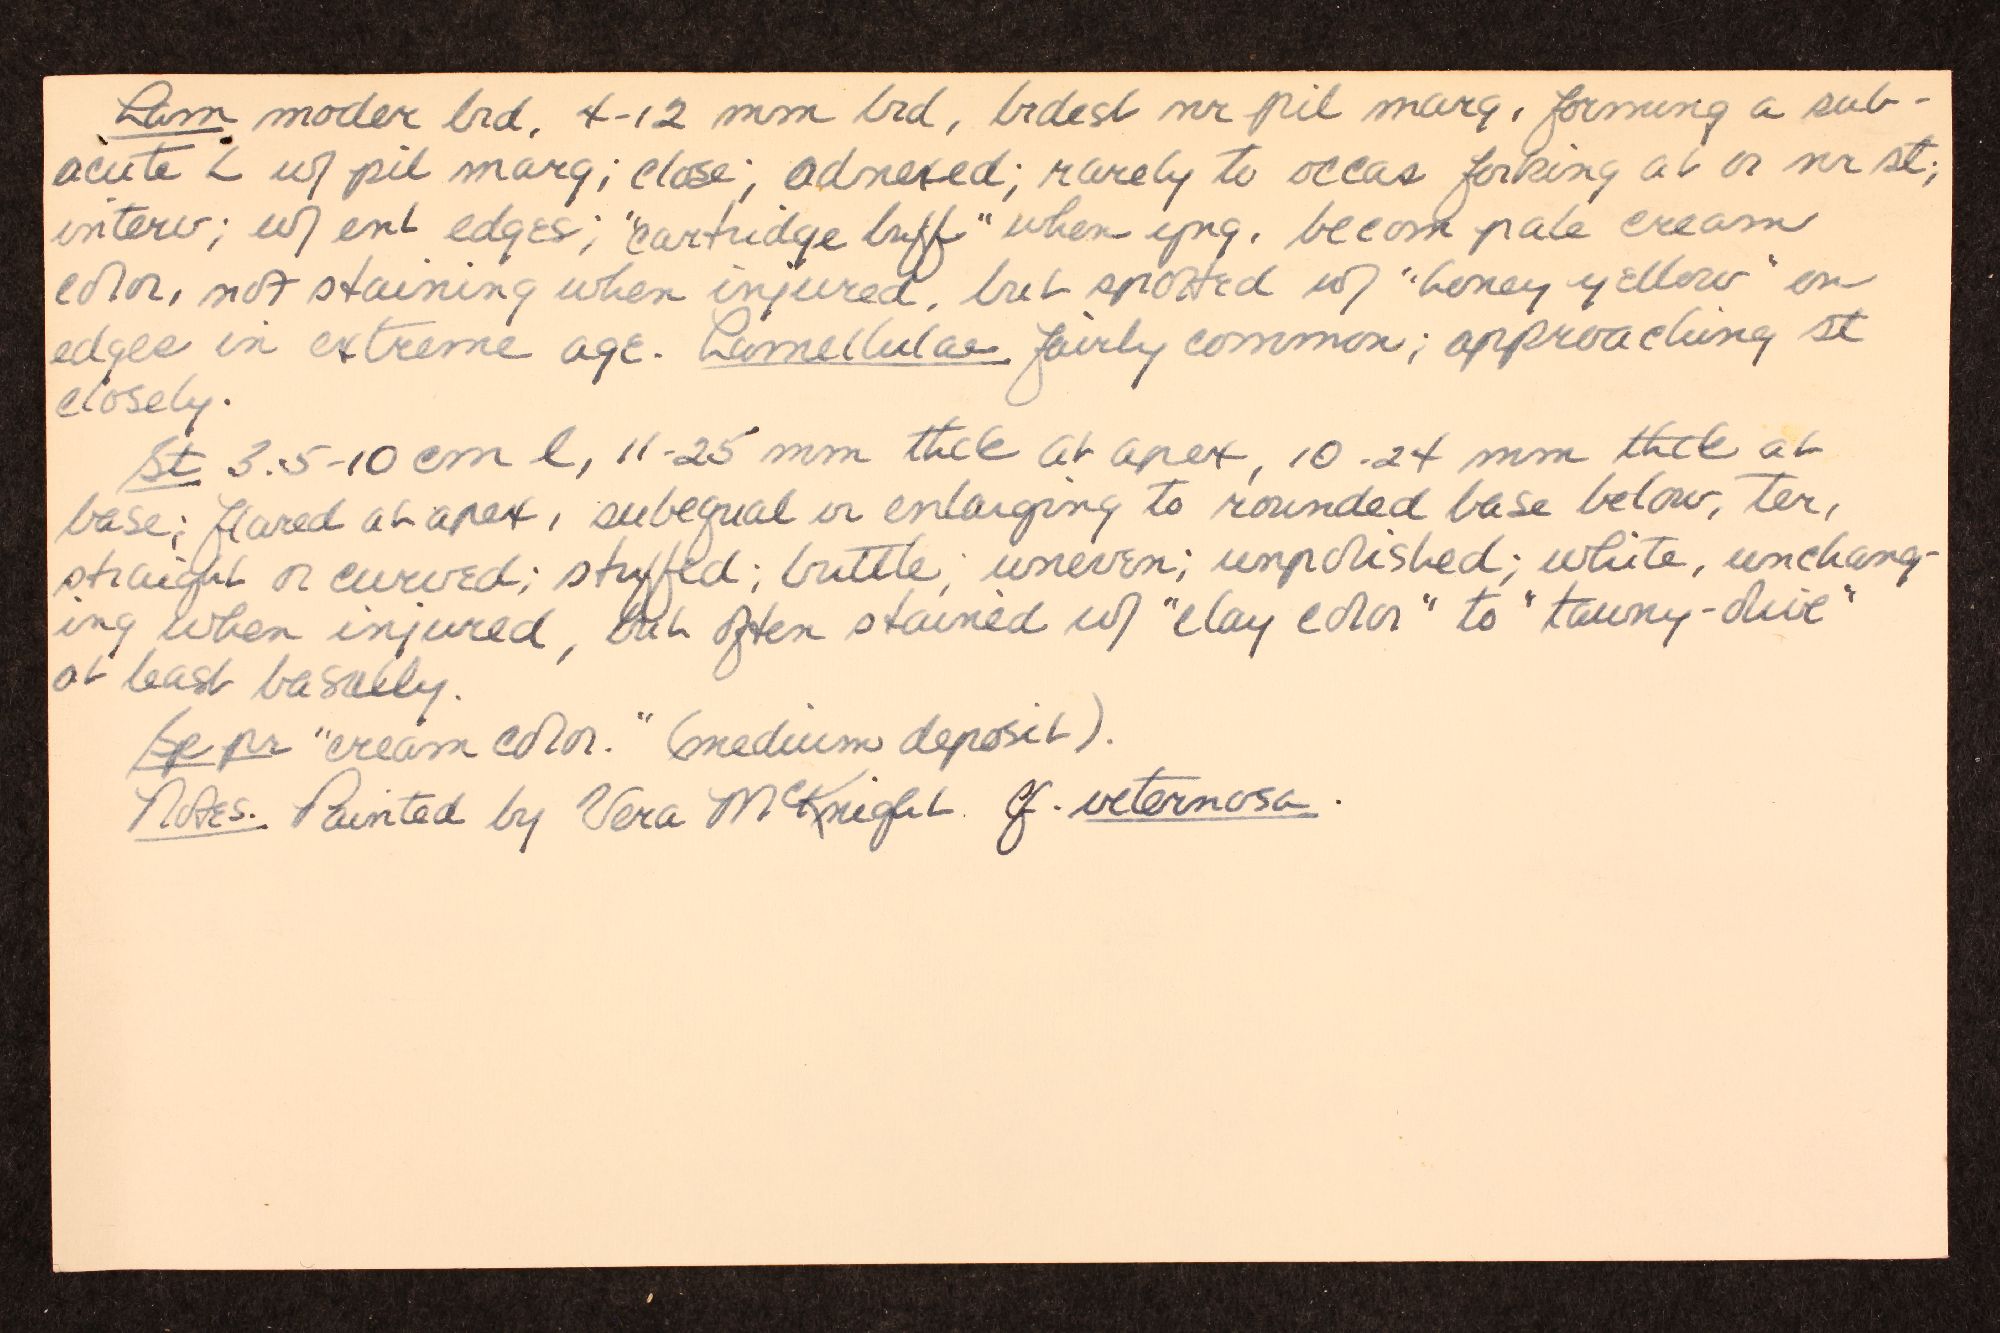 Lam moder brd, 4-12 mm brd, brdest nr pil marg, forming a sub-
acute ∠ w/ pil marg; close; adnexed; rarely to occas forking at or nr st;
interv; w/ ent edges; "cartridge buff" when yng, becom pale cream
color, not staining when injured, but spotted w/ "honey yellow" on
edges in extreme age. Lamellulae fairly common; approaching st
closely.
St 3.5-10 cm l, 11-25 mm thck at apex, 10-24 mm thck at
base; flared at apex, subequal or enlarging to rounded base below, ter,
straight or curved; stuffed; brittle; uneven; unpolished; white, unchang-
ing when injured, but often stained w/ "clay color" to "tawny-olive"
at least basally.
Sp pr "cream color." (medium deposit).
Notes. Painted by Vera McKnight. Cf. veternosa.